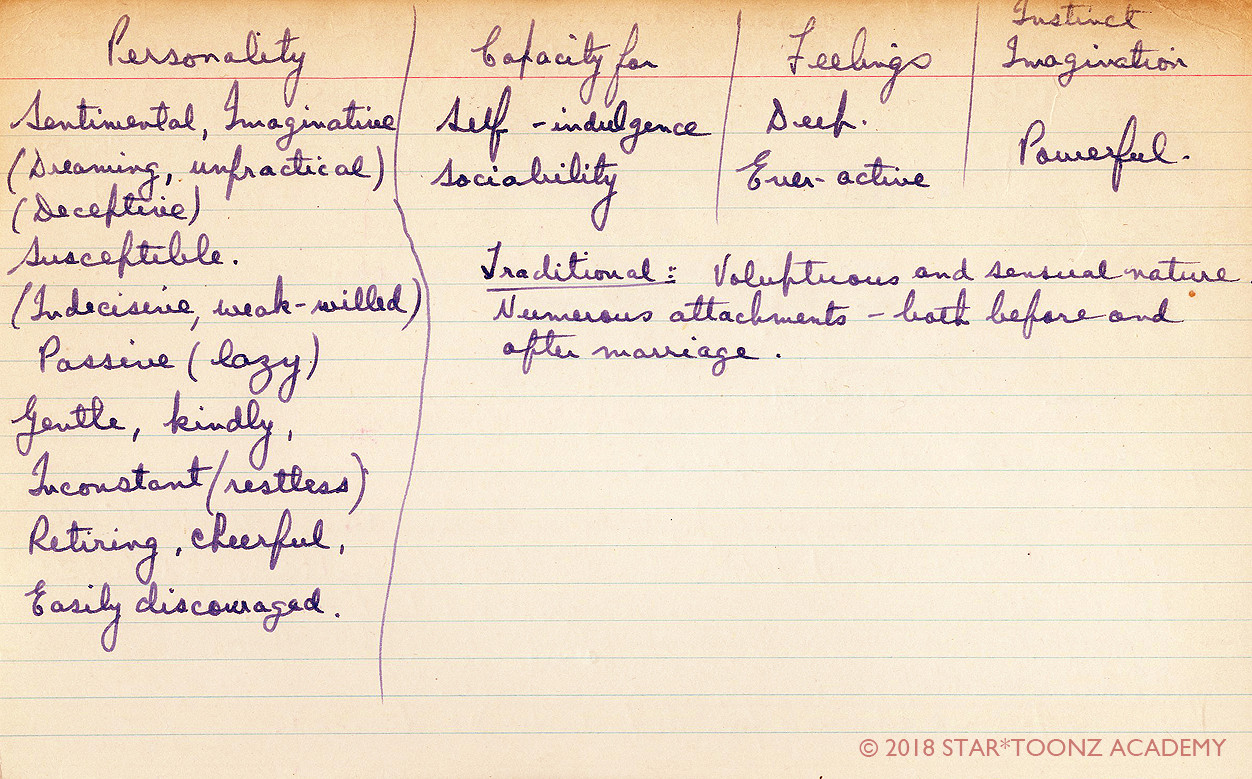 Personality
Sentimental, Imaginative
(Dreaming, unpractical)
(Deceptive)
Susceptible.
(Indecisive, weak-willed)
Passive (lazy)
Gentle, kindly,
Inconstant (restless)
Retiring, cheerful,
Easily discouraged.
Capacity for
Self-indulgence
Sociability
Feelings
Deep.
Ever-active
Instinct
Imagination
Powerful.
Traditional: Voluptuous and sensual nature
Numerous attachments - both before and
after marriage.
© 2018 STAR*TOONZ ACADEMY